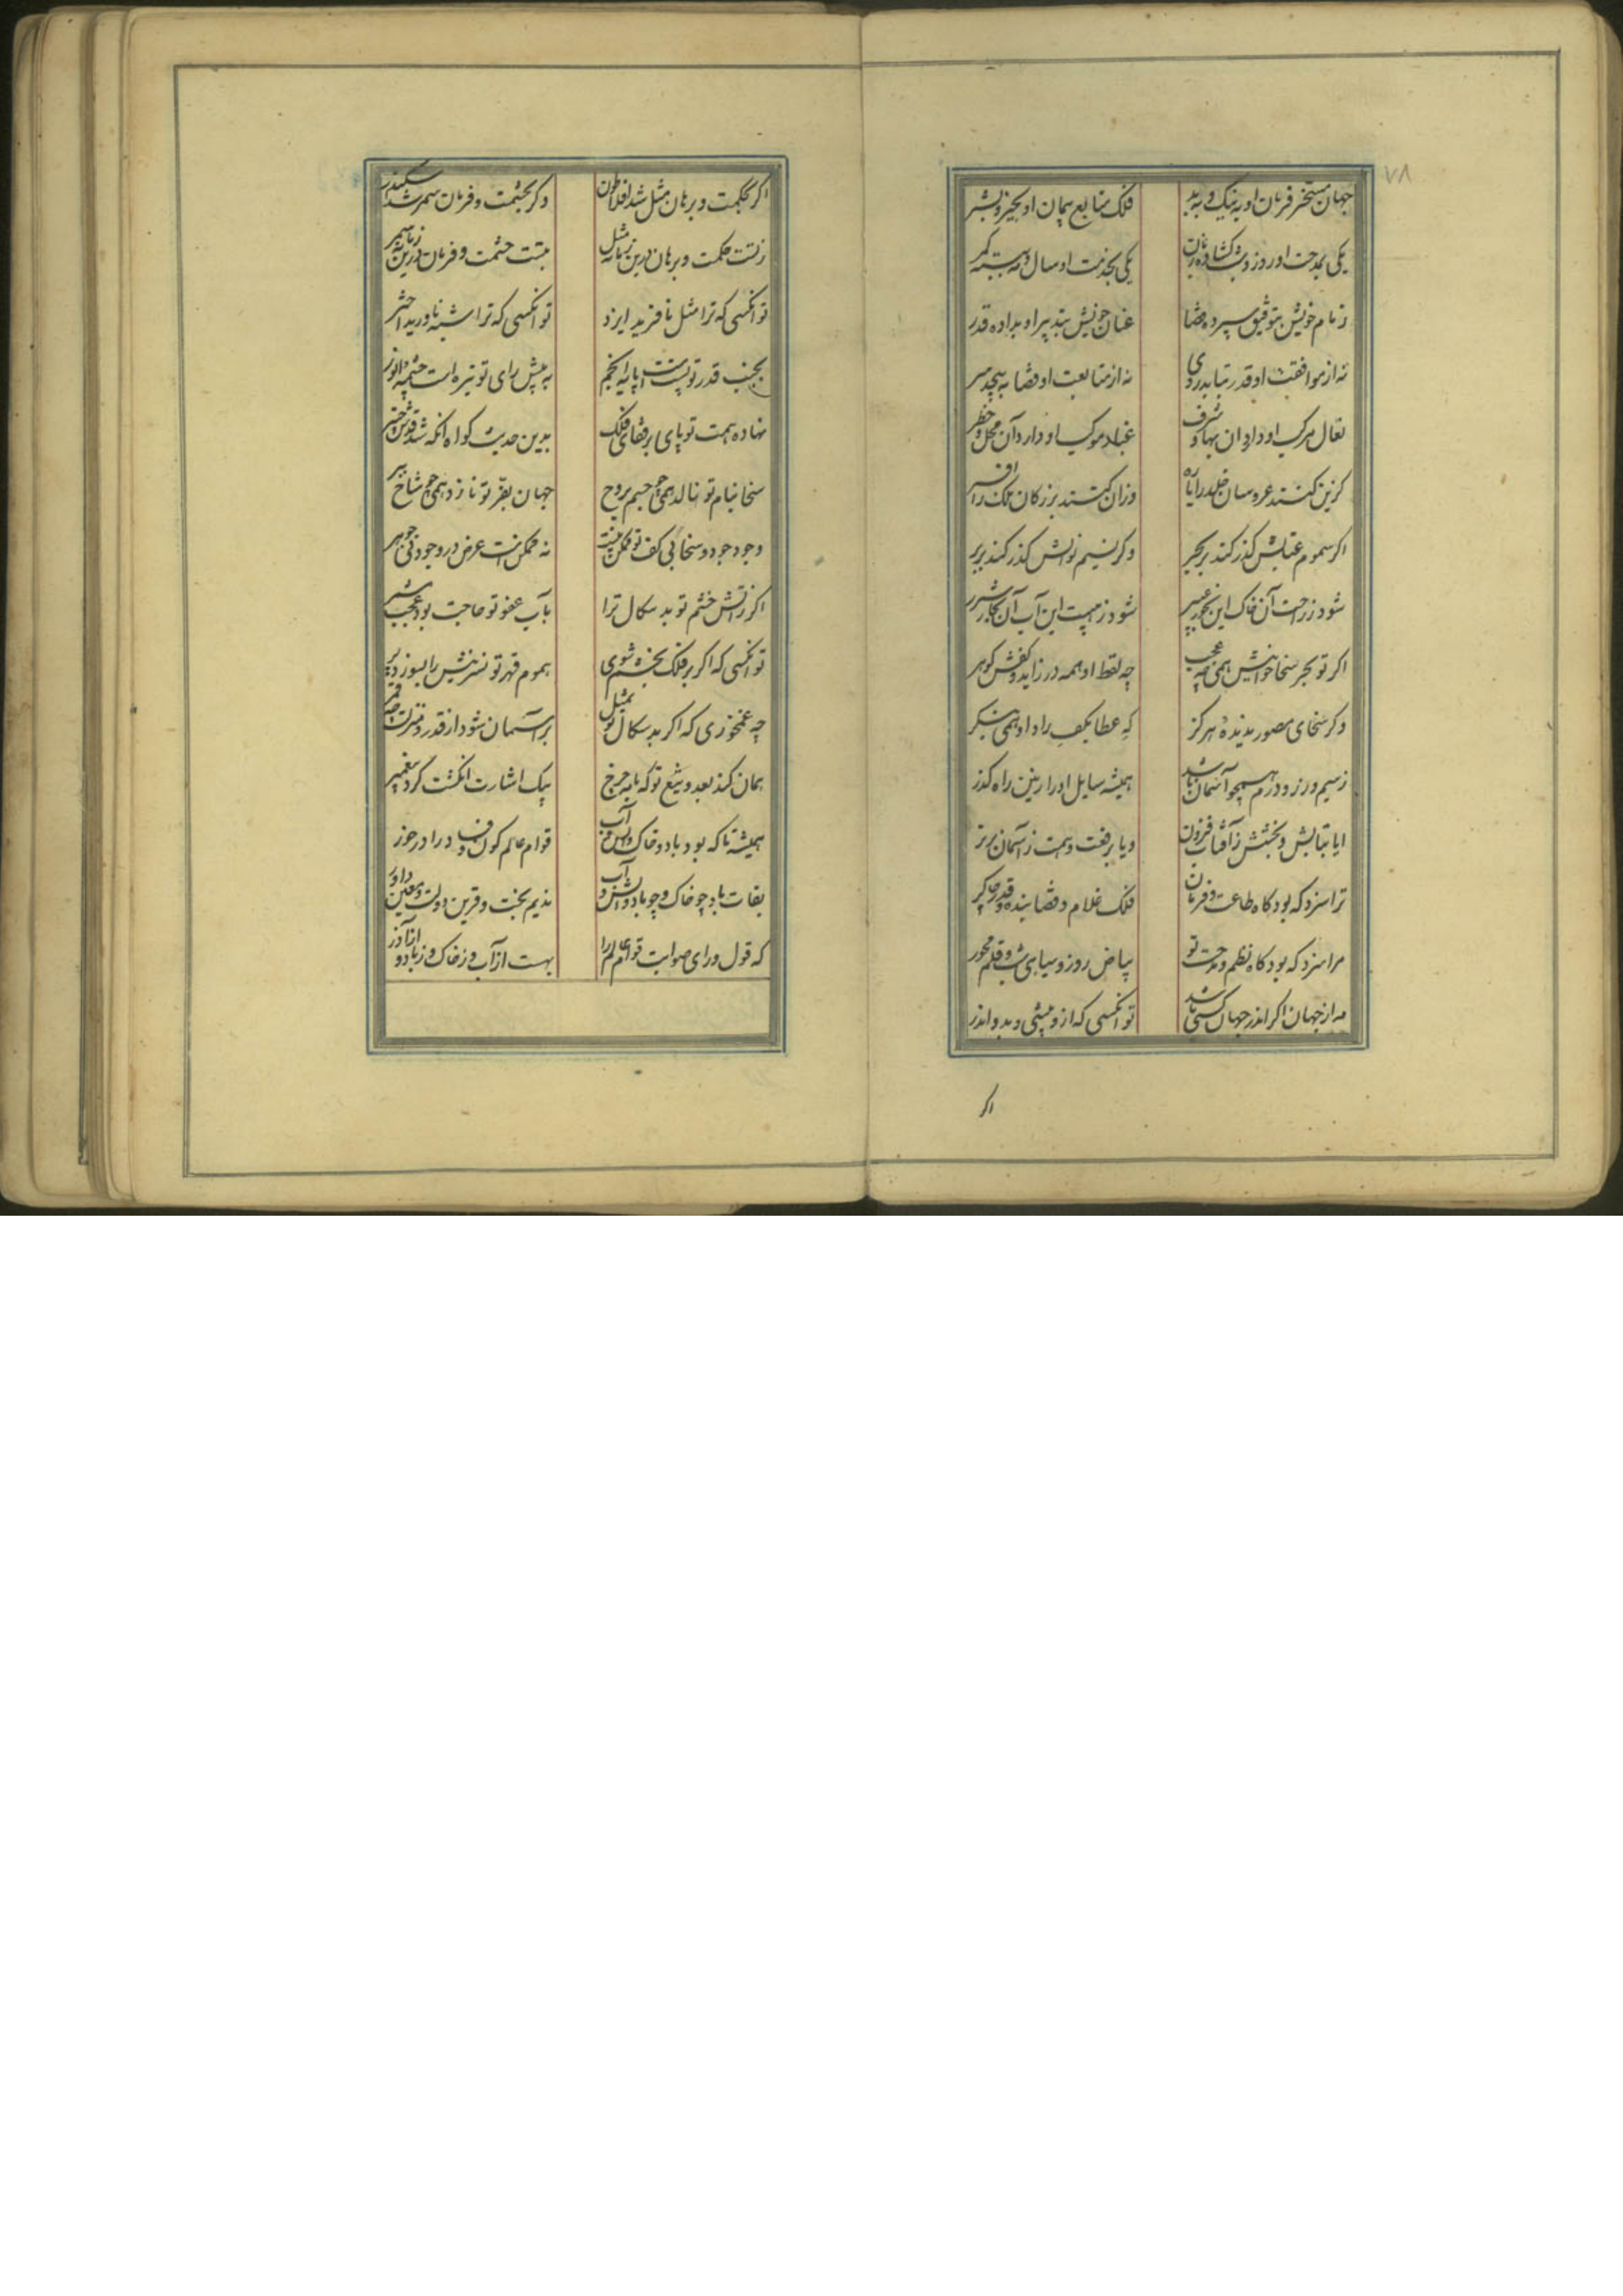 ۷۸
جهان مسخر فرمان او به نیک و به بد فلک متابع پیمان او بخیر و بشر
یکی بمدحت او روز و شب کشاده زبان یکی بخدمت او سال و مه ببسته کمر
زمام خویش بتوفیق سپرده قضا عنان خویش بتدبیر او بداده قدر
نه از موافقت او قدر بتابد روی نه از متابعت او قضا بپیچد سر
نعال مرکب او دارد آن بها و شرف غبار موکب او دارد آن محل و خطر
کزین کنند عروسان خلد را یاره وزان کنند بزرکان ملک را افسر
اکر سموم عتابش کذر کند بر بحر وکر نسیم نوالش کذر کند بر بر
شود ز راحت آن خاک این بخور عبیر شود ز هیبت این آب آن بخار شرر
اکر تو بحر سخا خوانیش همی چه عجب چه لفظ او همه در زاید و کفش کوهر
وکر سخای مصور ندیده هرکز که عطا بکف راد او همی بنکر
ز سیم و زر و درم همچو آسمان باشد همیشه سایل او را زمین راه کذر
ایا بتابش و بخشش ز آفتاب فزون ویا برفعت و همت ز آسمان برتر
ترا سزد که بود کاه طاعت و فرمان فلک غلام و قضا بنده و قدر چاکر
مرا سزد که بود کاه نظم مدحت تو بیاض روز و سیاهی شب و قلم محور
مه از جهان اکر اندر جهان کسی باشد تو آنکسی که ازو بیشی و بدو اندر
اکر
اکر بحکمت و برهان مثل شد افلاطون وکر بحشمت و فرمان سمر شد اسکندر
ز تست حکمت و برهان درین زمانه مثل بتست حشمت و فرمان درین زمانه سمر
تو آنکسی که ترا مثل نافرید ایزد تو آنکسی که ترا شبه ناورید اختر
بجنب قدر تو پست است پایه انجم به پیش رای تو تیره است چشمه انور
نهاده همت تو پای بر قفای فلک بدین حدیث کواه آنکه شد قدش چنبر
سخا بنام تو نالد همی چو جسم بروح جهان بفر تو نازد همی چو شاخ ببر
وجود جود و سخا بی کف تو ممکن نیست نه ممکن است عرض در وجود بی جوهر
اکر ز آتش خشم تو بد سکال ترا بآب عفو تو حاجت بود عجب مشمر
تو آنکسی که اکر بر فلک بخشم شوی هموم قهر تو نسرینش را بسوزد پر
چه غم خوری که اکر بد سکال تو بمثل بر آسمان شود از قدر و منزلت چو قمر
همان کند بعدو تیغ تو که با مه چرخ بیک اشارت انکشت کرد پیغمبر
همیشه تا که بود باد و خاک و آتش و آب قوام عالم کون و فساد را درخور
بقات باد چو خاک و چو باد و آتش و آب ندیم بخت و قرین دولت و معین داور
که قول و رای صوابت قوام عالم را بهست از آب و ز خاک و ز باد و از آذر